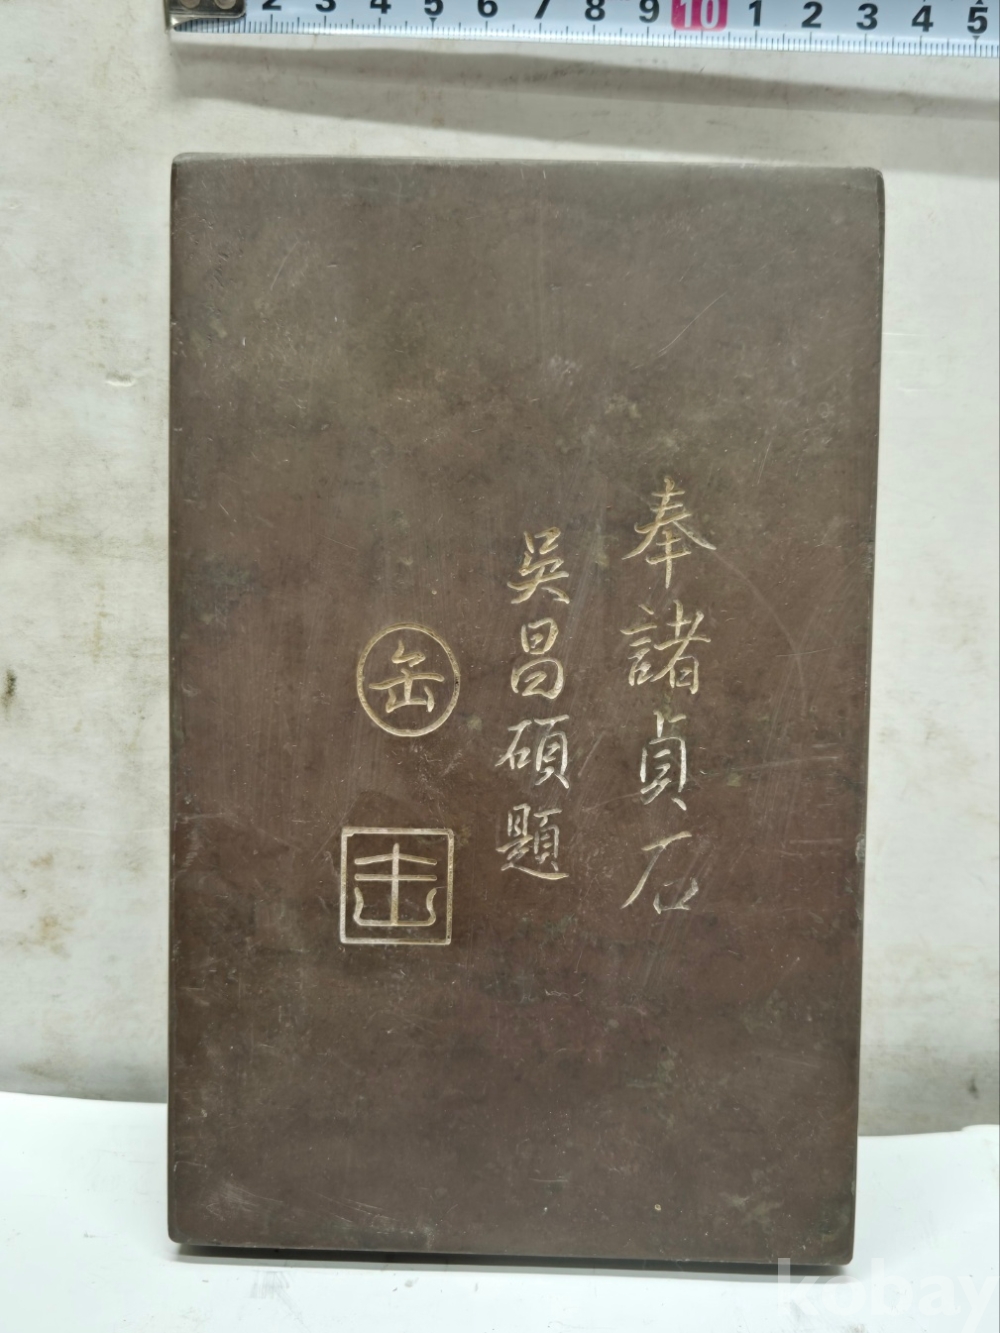 2 3 4 5 6 7 8 9 10 1 2 3 4 5
奉諸貞石
吳昌碩題
缶
缶
kobay